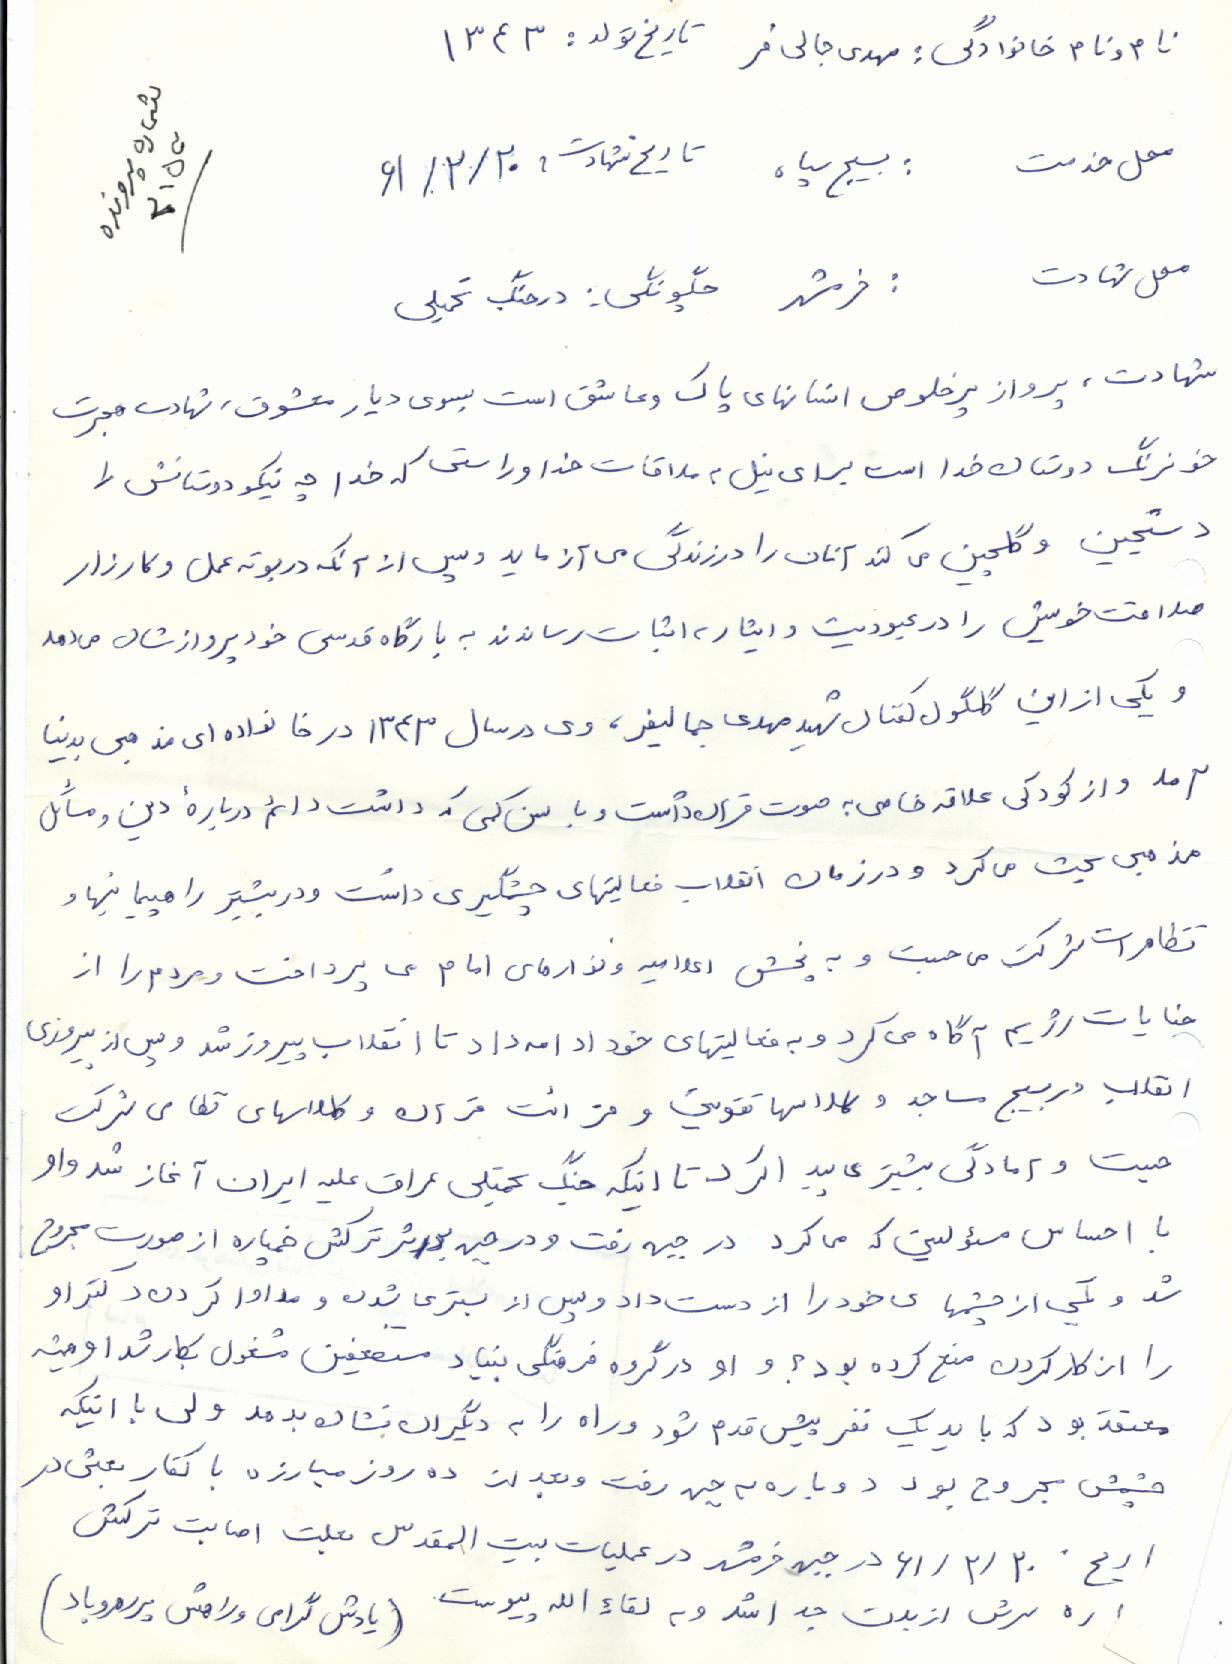 نام و نام خانوادگی : مهدی جمالی فر تاریخ تولد : ۱۳۴۳
شماره پرونده
محل خدمت : بسیج سپاه تاریخ شهادت : ۶۱/۲/۲۰
محل شهادت : خرمشهر چگونگی : در جنگ تحمیلی
شهادت ، پرواز پرخلوص انسانهای پاک و عاشق است بسوی دیار معشوق ، شهادت هجرت
خونرنگ دوستان خدا است برای نیل به ملاقات خدا و راستی که خدا چه نیکو دوستانش را
دستچین و گلچین می کند آنان را در زندگی می آزماید و پس از آنکه در بوته عمل و کارزار
صداقت خویش را در عبودیت و ایثار به اثبات رساندند به بارگاه قدسی خود پروازشان میدهد
و یکی از این گلگون کفنان شهید مهدی جمالیفر ، وی در سال ۱۳۴۳ در خانواده ای مذهبی بدنیا
آمد و از کودکی علاقه خاصی به صوت قرآن داشت و با سن کمی که داشت دائم دربارهٔ دین و مسائل
مذهبی بحث می کرد و در زمان انقلاب فعالیتهای چشمگیری داشت و در بیشتر راهپیمائیها و
تظاهرات شرکت می جست و به پخش اعلامیه و نوارهای امام می پرداخت و مردم را از
جنایات رژیم آگاه می کرد و به فعالیتهای خود ادامه داد تا انقلاب پیروز شد و پس از پیروزی
انقلاب در بسیج مساجد و کلاسها تقویتی و قرائت قرآن و کلاسهای نظامی شرکت
جست و آمادگی بیشتر پیدا کرد تا اینکه جنگ تحمیلی عراق علیه ایران آغاز شد و او
با احساس مسئولیتی که می کرد در جبهه رفت و در جبهه بر اثر ترکش خمپاره از صورت مجروح
شد و یکی از چشمهای خود را از دست داد و پس از بستری شدن و مداوا کردن دکتر او
را از کار کردن منع کرده بود ؟ و او در گروه فرهنگی بنیاد مستضعفین مشغول بکار شد او همیشه
معتقد بود که باید یک نفر پیش قدم شود و راه را به دیگران نشان بدهد ولی با اینکه
چشمش مجروح بود دوباره به جبهه رفت و بعد از ده روز مبارزه با کفار بعثی در
اریخ ۶۱/۲/۲۰ در جبهه خرمشهر در عملیات بیت المقدس بعلت اصابت ترکش
اره سرش از بدن جدا شد و به لقاء الله پیوست . (یادش گرامی و راهش پر رهرو باد)